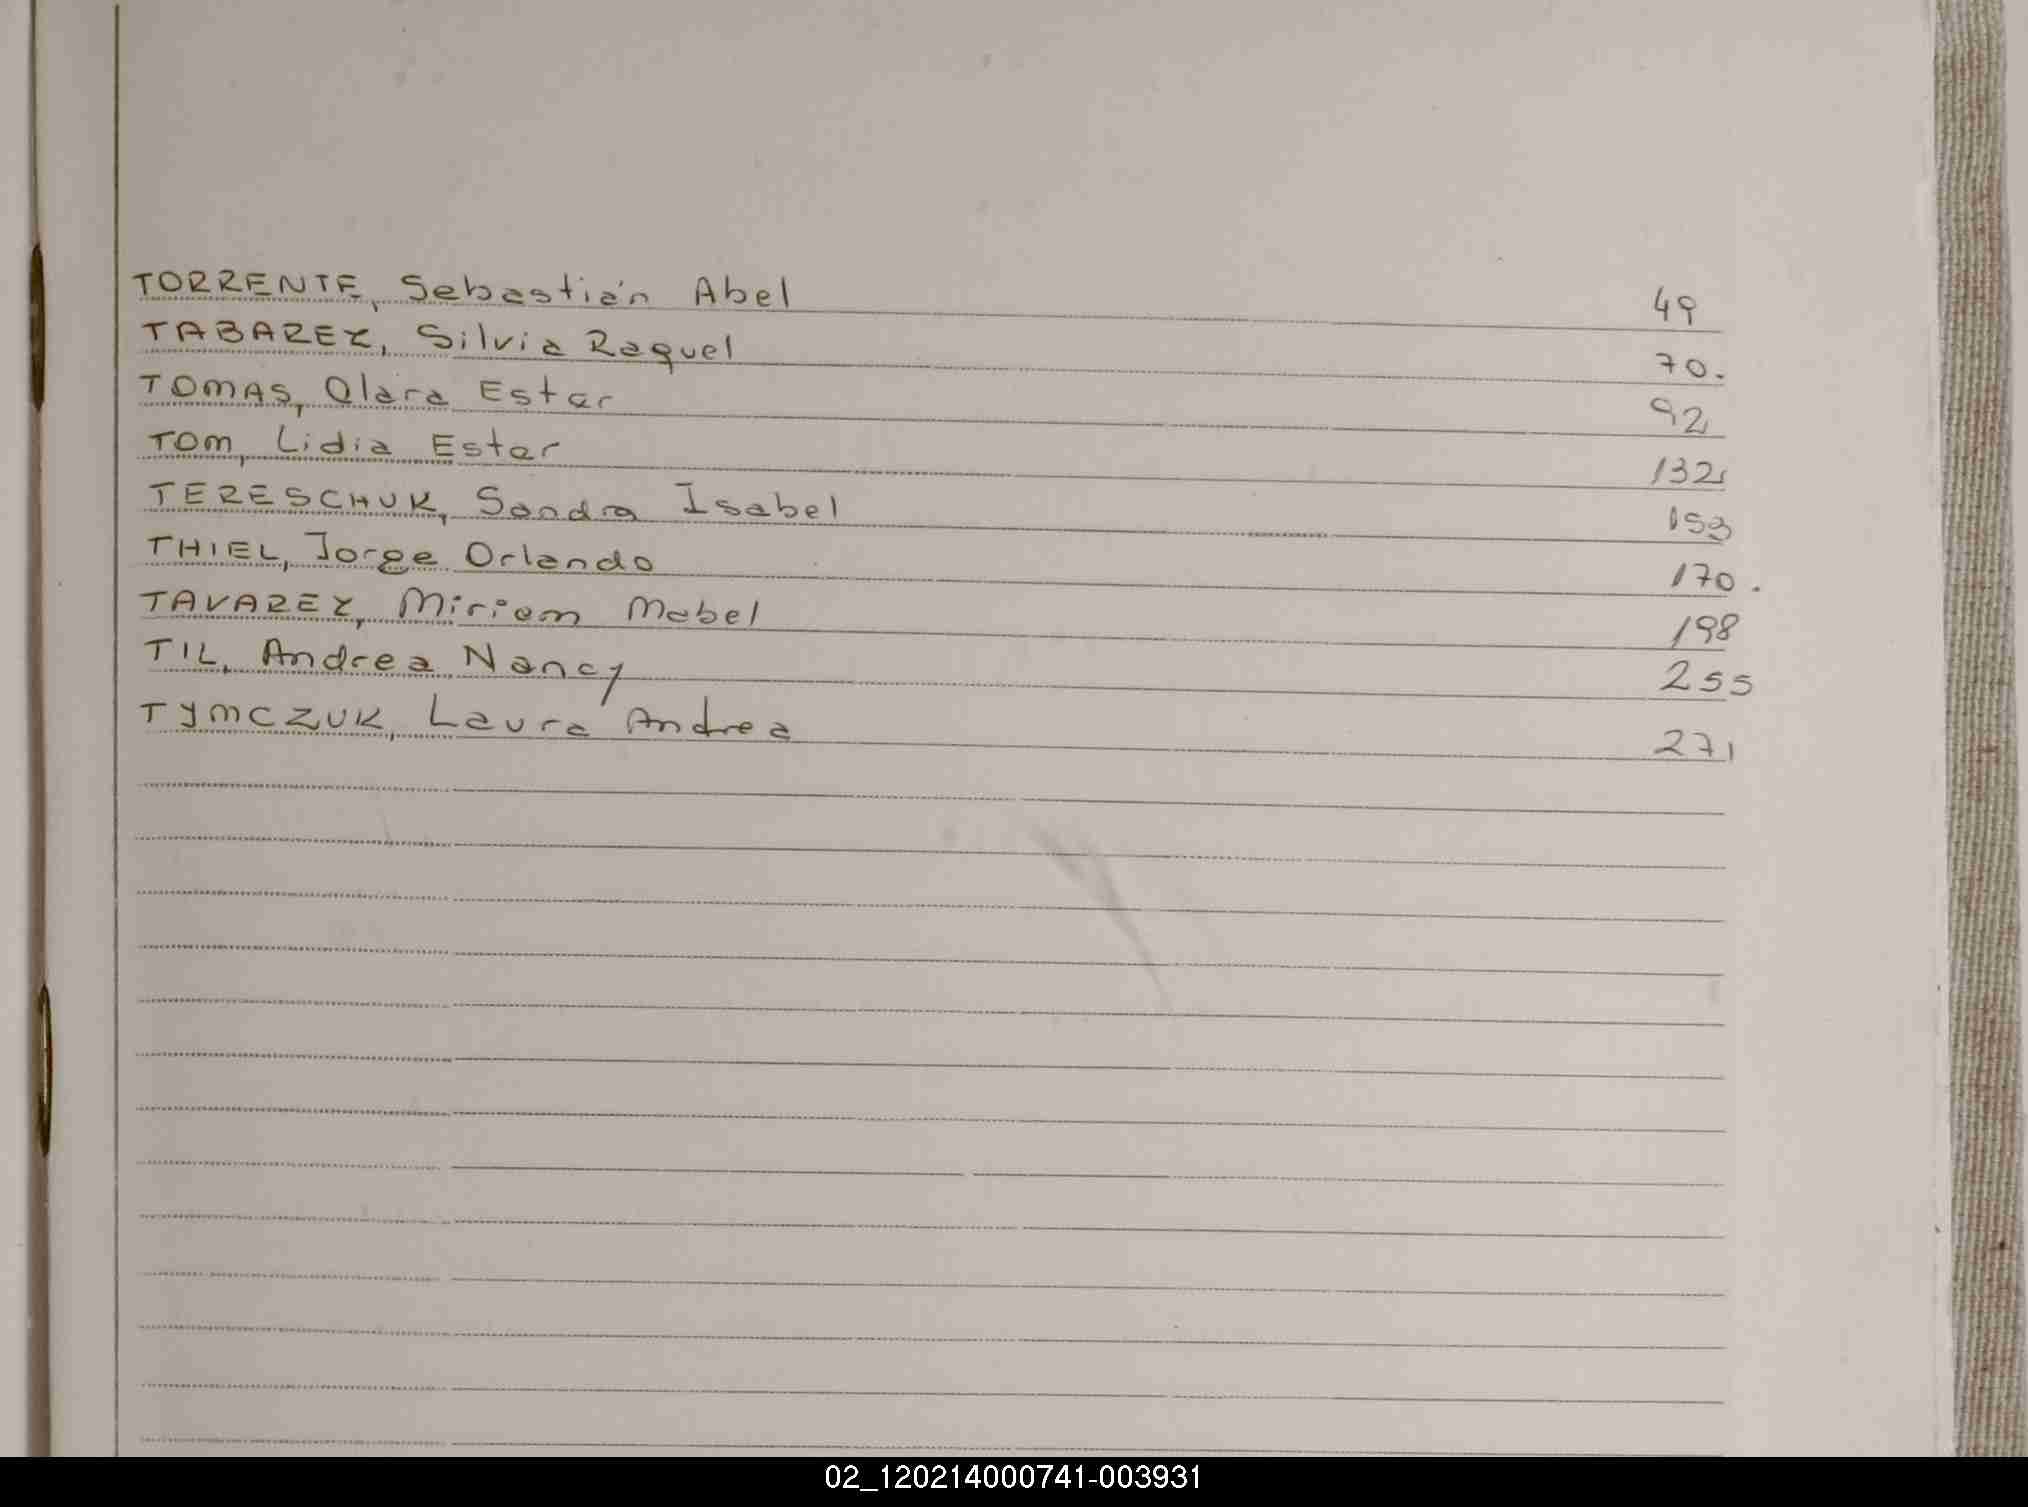 TORRENTE, Sebastián Abel 49
TABAREZ, Silvia Raquel 70.
TOMAS, Olara Ester 92
TOM, Lidia Ester 132
TERESCHUK, Sandra Isabel 153
THIEL, Jorge Orlando 170.
TAVAREZ, Miriam Mabel 198
TIL, Andrea Nancy 255
TYMCZUK, Laura Andrea 271
02_120214000741-003931